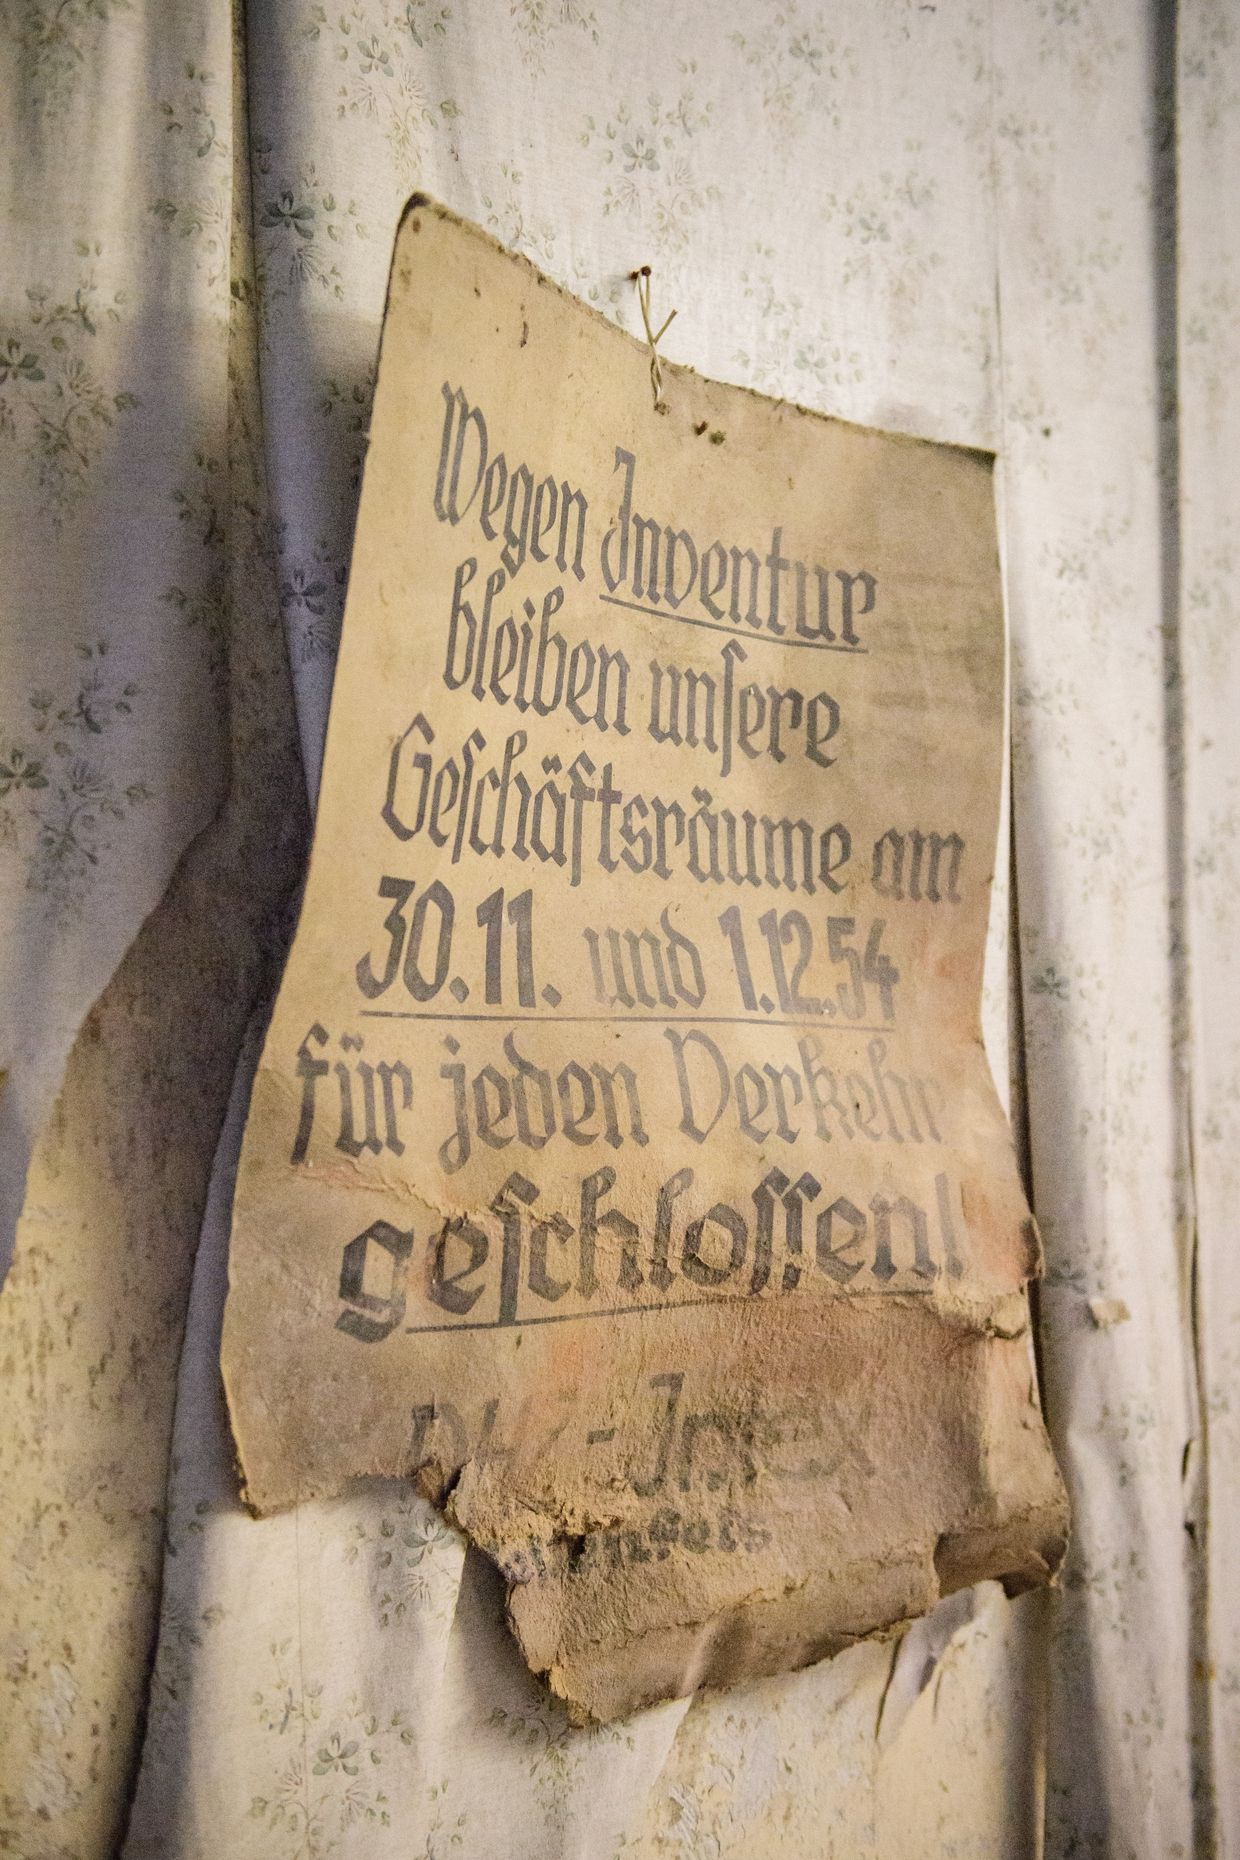 Wegen Inventur
bleiben unsere
Geschäftsräume am
30.11. und 1.12.54
für jeden Verkehr
geschlossen!
DHZ - Intex